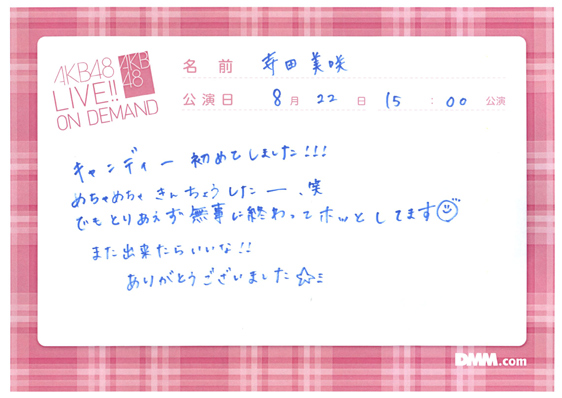 AKB48
LIVE!!
ON DEMAND
AKB
48
名前 寺田美咲
公演日 8月22日 15:00公演
キャンディー 初めてしました!!!
めちゃめちゃ きんちょうしたー、笑
でもとりあえず無事に終わってホッとしてます
また出来たらいいな!!
ありがとうございました☆ミ
DMM.com